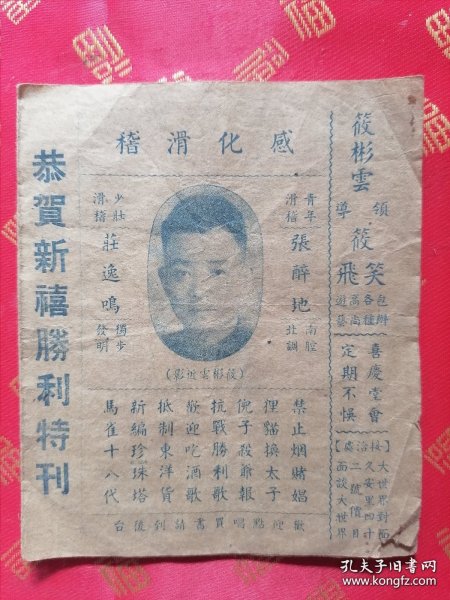 筱彬雲
領導
筱笑飛
包辦各種
高尚遊藝
喜慶堂會
定期不悞
【接洽處】
大世界對面
久安里四十
二號價目
面談大世界
感化滑稽
青年滑稽
張醉地
南腔北調
少壯滑稽
莊逸鳴
獨步發明
(筱彬雲近影)
禁止烟賭娼
狸貓換太子
倪子殺爺報
抗戰勝利歌
歡迎吃酒歌
抵制東洋貨
新編珍珠塔
馬雀十八代
歡迎點唱買書請到後台
恭賀新禧勝利特刊
孔夫子旧书网
www.kongfz.com